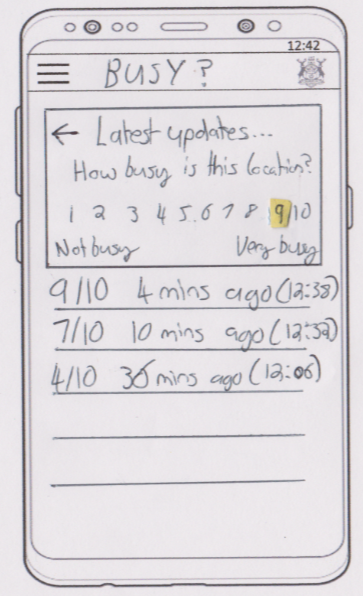 12:42
BUSY?
← Latest updates...
How busy is this location?
1 2 3 4 5 6 7 8 9/10
Not busy Very busy
9/10 4 mins ago (12:38)
7/10 10 mins ago (12:32)
4/10 36 mins ago (12:06)